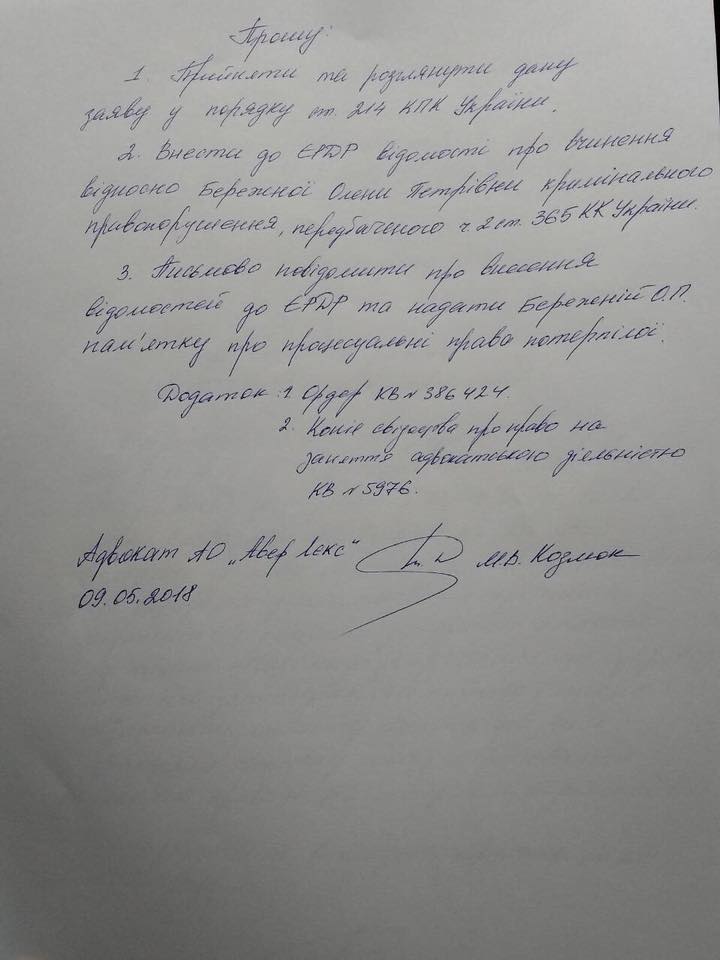 Прошу:
1. Прийняти та розглянути дану
заяву у порядку ст. 214 КПК України.
2. Внести до ЄРДР відомості про вчинення
відносно Бережної Олени Петрівни кримінального
правопорушення, передбаченого ч. 2 ст. 365 КК України.
3. Письмово повідомити про внесення
відомостей до ЄРДР та надати Бережній О.П.
пам'ятку про процесуальні права потерпілої.
Додаток: 1. Ордер КВ № 386424.
2. Копія свідоцтва про право на
заняття адвокатською діяльністю
КВ № 5976.
Адвокат АО „Авер Лекс“ М.В. Козлюк
09.05.2018